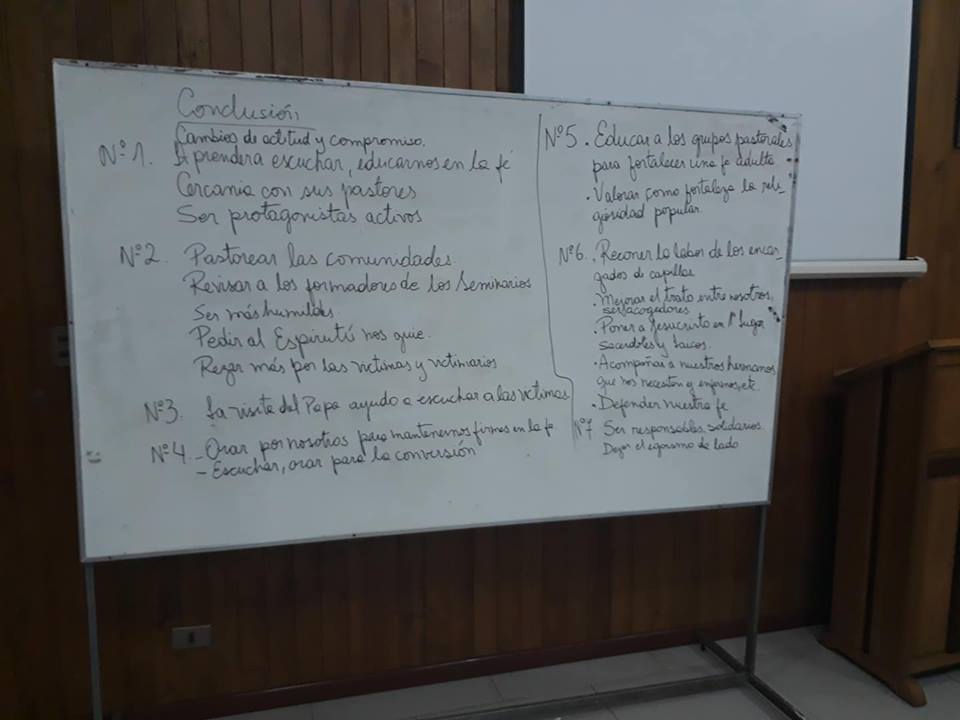 Conclusión
Cambios de actitud y compromiso.
Nº 1. Aprender a escuchar, educarnos en la fé
Cercania con sus pastores
Ser protagonistas activos
Nº 2 Pastorear las comunidades.
Revisar a los formadores de los Seminarios
Ser más humildes.
Pedir al Espirutú nos guie.
Rezar más por las victimas y victimarios
Nº 3. La visita del Papa ayudo a escuchar a las victimas
Nº 4. - Orar por nosotros para mantenernos firmes en la fe
- Escuchar, orar para la conversión
Nº 5. Educar a los grupos pastorales
para fortalecer una fe adulta
· Valorar como fortaleza la reli-
giosidad popular.
Nº 6. . Reconer la labor de los encar-
gados de capillas
· Mejorar el trato entre nosotros,
ser acogedores
· Poner a Jesucristo en 1º lugar
sacerdotes y laicos.
· Acompañar a nuestros hermanos
que nos necesitan y enfermos, etc.
· Defender nuestra fe
Nº 7 Ser responsables, solidarios.
Dejar el egoismo de lado